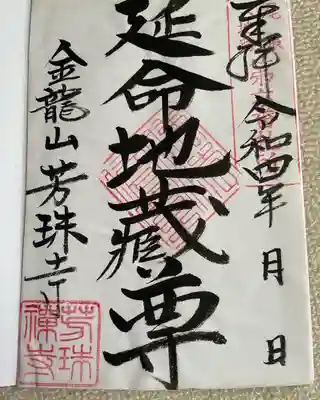 奉拝 令和四年 月 日
延命地蔵尊
金龍山芳珠寺
芳珠
禅寺